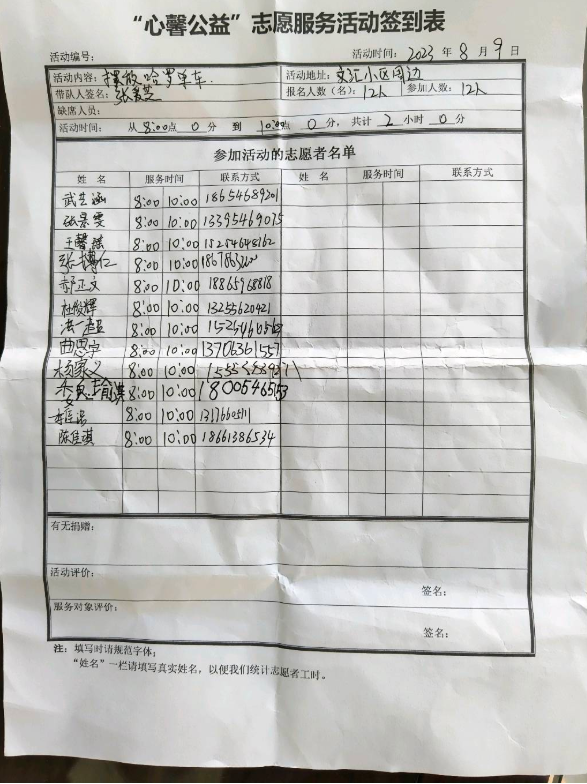 “心馨公益”志愿服务活动签到表
活动编号： 活动时间：2023 年 8 月 9 日
活动内容：摆放哈罗单车. 活动地址：文汇小区周边
带队人签名： 报名人数（名）：12人 参加人数：12人
缺席人员：
活动时间： 从 8:00点 0 分 到 10:00点 0 分，共计 2 小时 0 分
参加活动的志愿者名单
姓 名 服务时间 联系方式 姓 名 服务时间 联系方式
武艺涵 8:00 10:00 18654689201
张景雯 8:00 10:00 13395469075
8:00 10:00
张博仁 8:00 10:00
郝正文 8:00 10:00 18865968818
杜俊辉 8:00 10:00 13255620421
8:00 10:00
曲思宇 8:00 10:00 13706361557
杨家义 8:00 10:00
8:00 10:00
8:00 10:00
陈佳琪 8:00 10:00 18661386534
有无捐赠：
活动评价：
签名：
服务对象评价：
签名：
注：填写时请规范字体；
“姓名”一栏请填写真实姓名，以便我们统计志愿者工时。